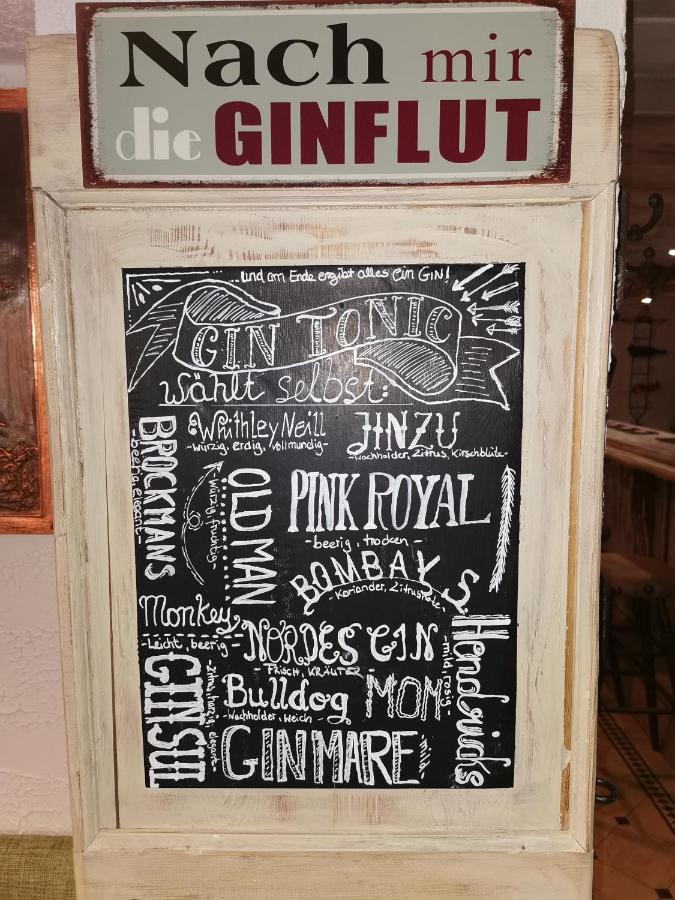 Nach mir
die GINFLUT
...und am Ende ergibt alles ein GIN!
GIN TONIC
wählt selbst:
Whithley Neill
-würzig, erdig, vollmundig-
JINZU
-wachholder, Zitrus, Kirschblüte-
BROCKMANS
-beerig, elegant-
OLD MAN
-würzig, fruchtig-
PINK ROYAL
-beerig, trocken-
BOMBAY S.
-Koriander, Zitrusnote-
Monkey
-Leicht, beerig-
NORDES GIN
-Frisch, KRÄUTER-
Hendricks
-mild, rosig-
GINSUL
-Zitrus, harzig, elegant-
Bulldog
-Wachholder, Weich-
MOM
GINMARE